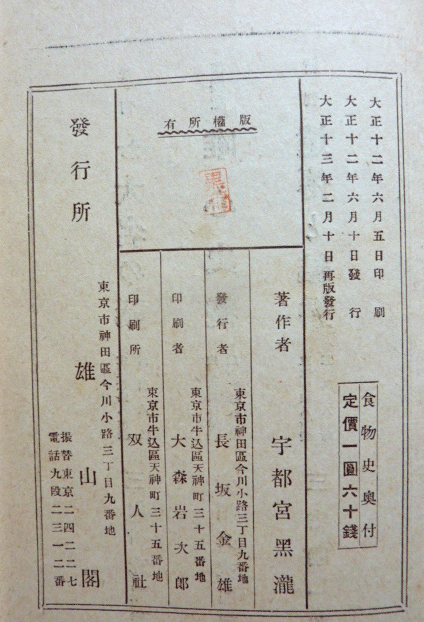 大正十二年六月五日印刷
大正十二年六月十日發行
大正十三年二月十日再版發行
食物史奥付
定價一圓六十錢
版權所有
著作者 宇都宮黑瀧
東京市神田區今川小路三丁目九番地
發行者 長坂金雄
東京市牛込區天神町三十五番地
印刷者 大森岩次郎
東京市牛込區天神町三十五番地
印刷所 双人社
發行所
東京市神田區今川小路三丁目九番地
雄山閣
振替東京二四二二七
電話九段二三一二番